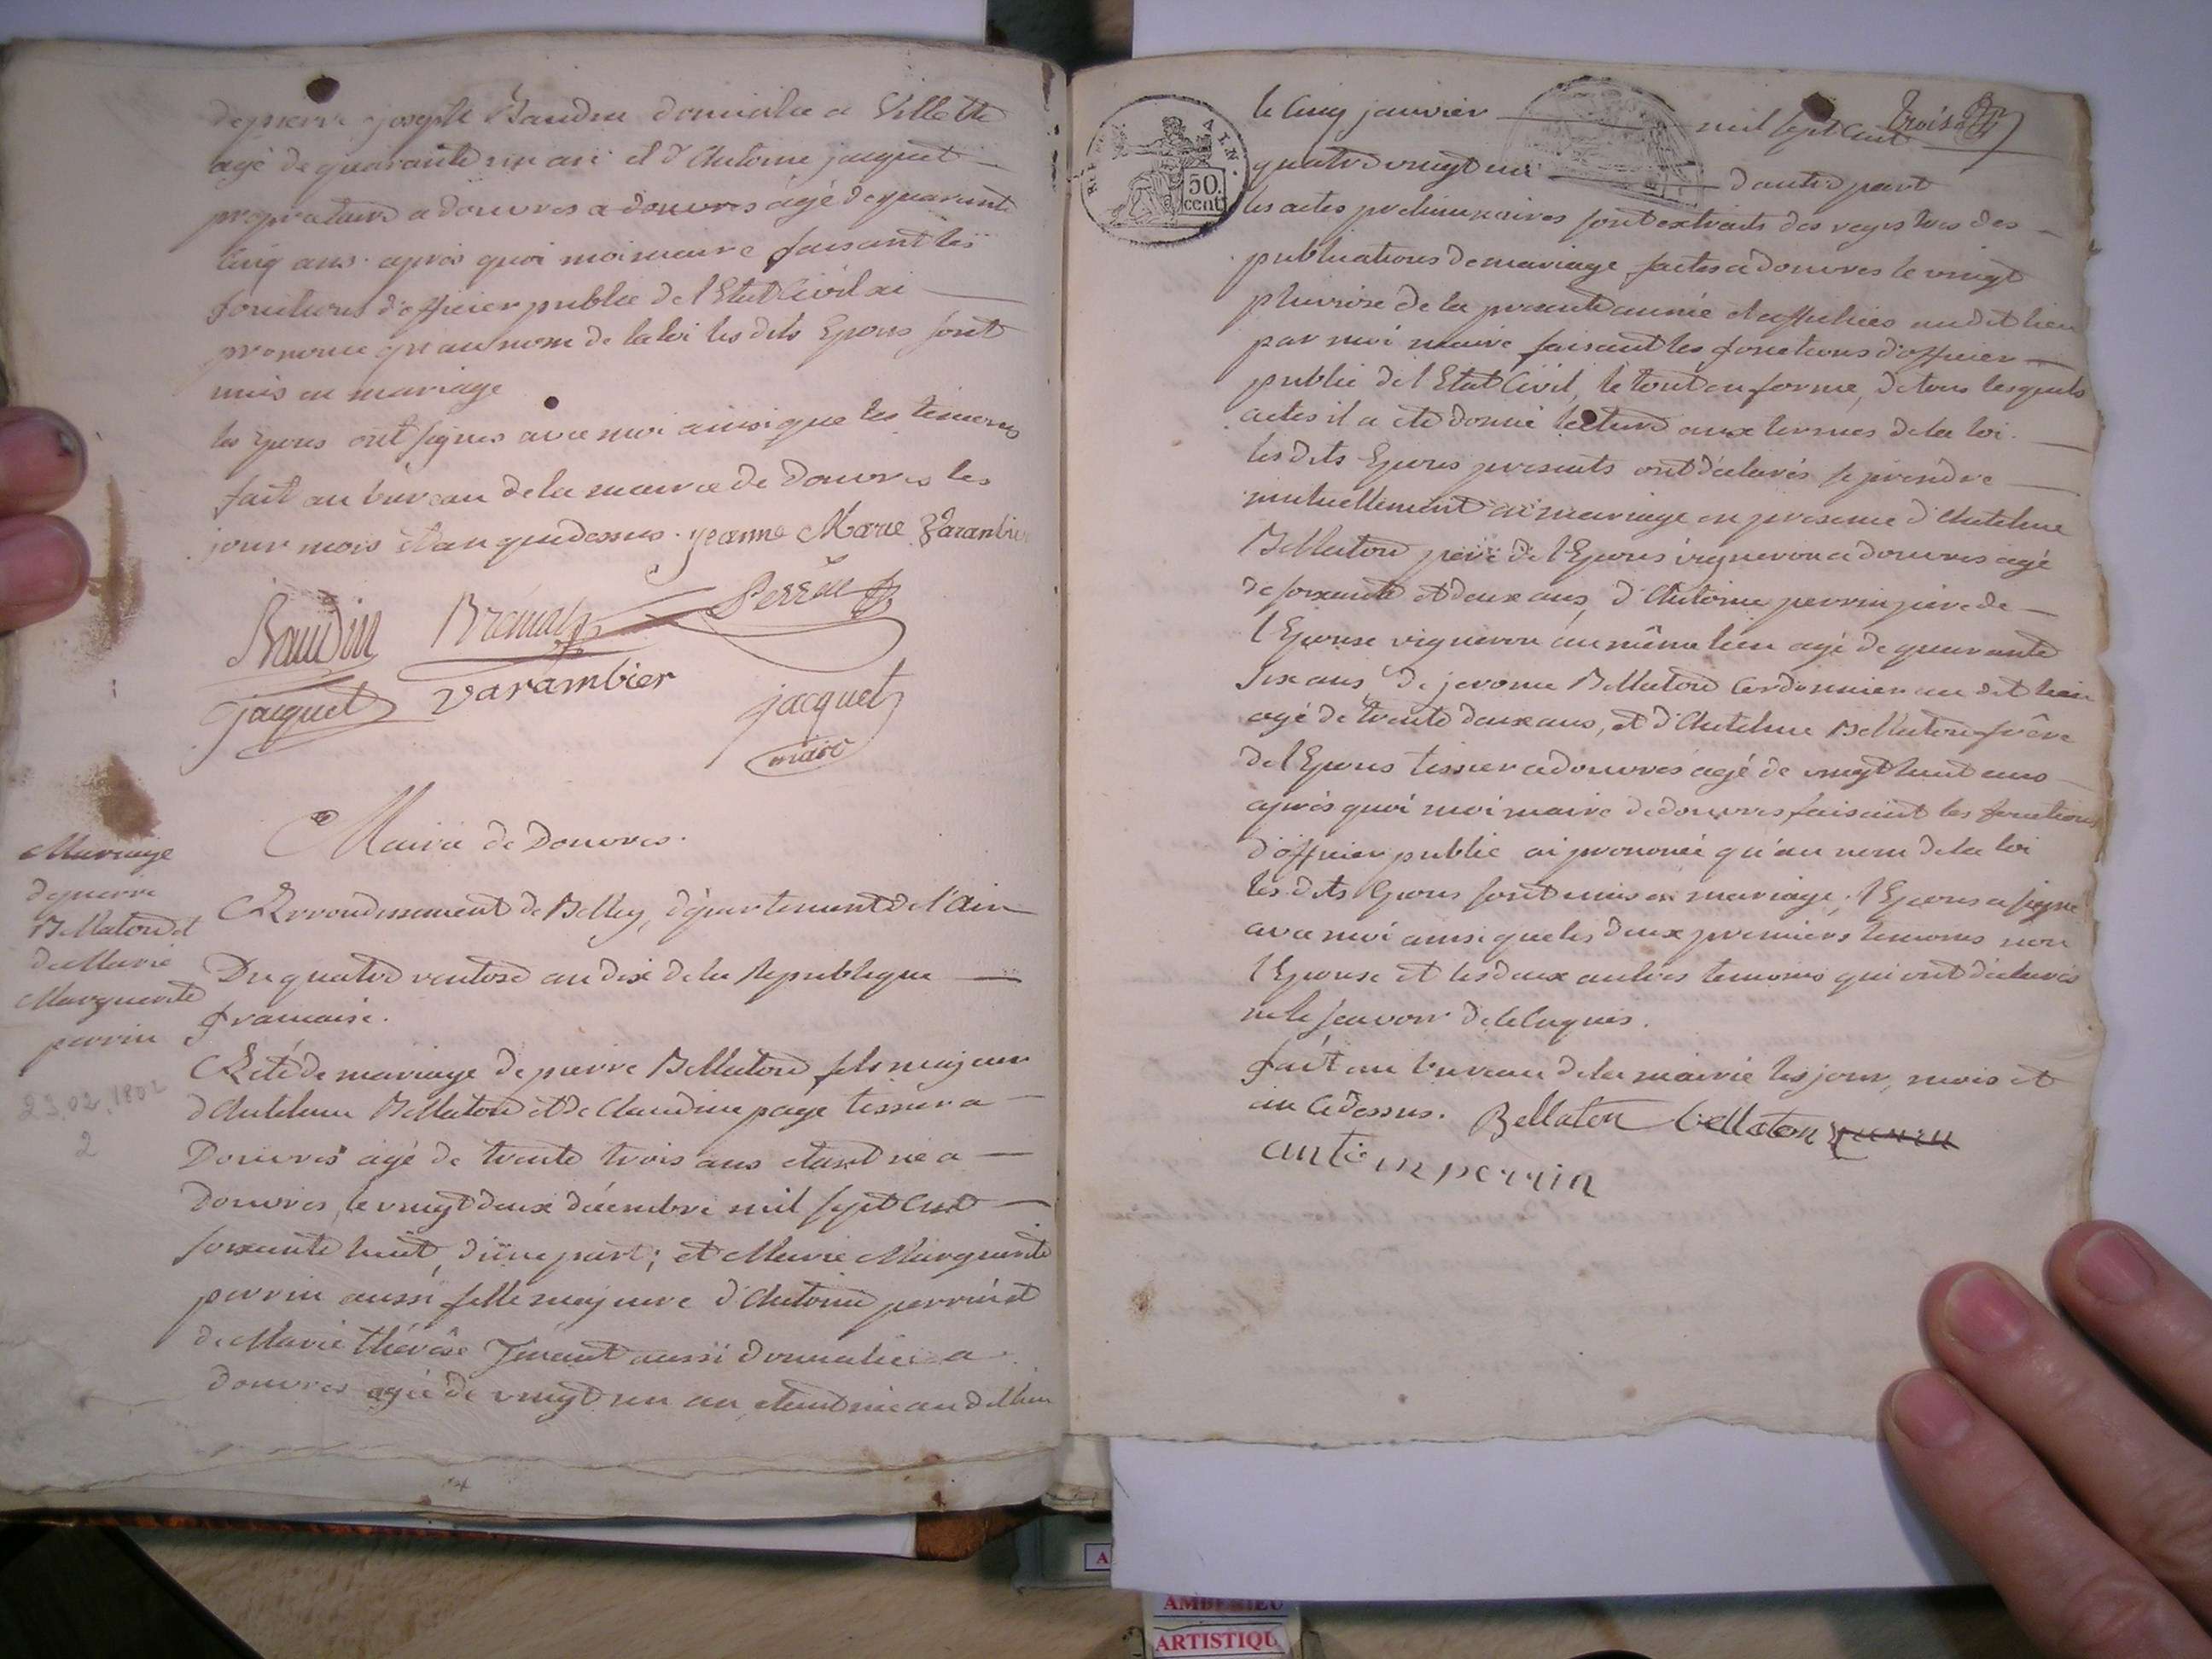 de pierre joseph Baudin domicilié a Villette
agé de quarante un ans et d'Antoine jacquet
propriétaire a douvres a douvres âgé de quarante
cinq ans. après quoi moi maire faisant les
fonctions d'officier public de l'Etat Civil ai
prononcé qu'au nom de la loi les dits Epoux sont
unis en mariage
les Epoux ont signés avec moi ainsi que les temoins
fait au bureau de la mairie de Douvres les
jour mois et an que dessus. jeanne Marie Varambier
Baudin
jacquet varambier jacquet
maire
Mairie de Douvres.
Mariage
de pierre
Bellaton et
de Marie
Marguerite
perrin
23.02.1802
2
Arrondissement de Belley, département de l'Ain
Du quatre ventose an dix de la Republique
francaise.
Acte de mariage de pierre Bellaton fils majeur
d'Antelme Bellaton et de Claudine page tissier a
Douvres agé de trente trois ans etant né a
Douvres, le vingt deux décembre mil sept cent
soixante huit, d'une part; et Marie Marguerite
perrin aussi fille majeure d'Antoine perrin et
de Marie thérèse aussi domiciliée a
douvres agée de vingt un an etant née au dit lieu
le cinq janvier mil sept cent trois
quatre vingt un d'autre part
REP. AIN.
50.
cent
les actes preliminaires sont extraits des registres des
publications de mariage faites a douvres le vingt
pluviose de la presente année et affichées au dit lieu
par moi maire faisant les fonctions d'officier
public de l'Etat Civil, le tout en forme, de tous lesquels
actes il a eté donné lecture aux termes de la loi.
les dits Epoux presents ont déclarés se prendre
mutuellement en mariage en presence d'Antelme
Bellaton père de l'Epoux vigneron a douvres agé
de soixante et deux ans, d'Antoine perrin père de
l'Epouse vigneron au même lieu agé de quarante
six ans, de jerome Bellaton Cordonnier au dit lieu
agé de trente deux ans, et d'Antelme Bellaton frère
de l'Epoux tissier a douvres agé de vingt huit ans
après quoi moi maire de douvres faisant les fonctions
d'officier public ai prononcé qu'au nom de la loi
les dits Epoux sont unis en mariage; l'Epoux a signé
avec moi ainsi que les deux premiers temoins non
l'Epouse et les deux autres temoins qui ont déclarés
ne le savoir de ce enquis.
fait au bureau de la mairie les jour, mois et
an Cidessus. Bellaton bellaton perrin
antoin perrin
AMBERIEU
ARTISTIQU